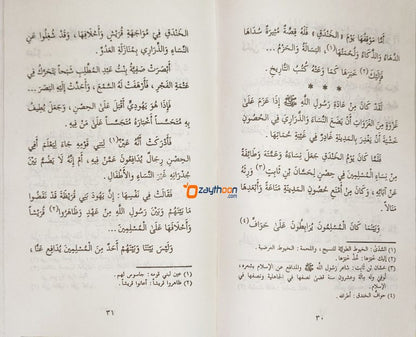 أَمَّا مَوْقِفُهَا يَوْمَ «الْخَنْدَقِ» فَلَهُ قِصَّةٌ مُثِيرَةٌ سُدَاهَا
الدَّهَاءُ وَالذَّكَاءُ وَلُحْمَتُهَا(١) الْبَسَالَةُ وَالْحَزْمُ...
فَإِلَيْكَ(٢) خَبَرَهَا كَمَا وَعَتْهُ كُتُبُ التَّارِيخِ.
* * *
لَقَدْ كَانَ مِنْ عَادَةِ رَسُولِ اللَّهِ ﷺ إِذَا عَزَمَ عَلَى
غَزْوَةٍ مِنَ الْغَزَوَاتِ أَنْ يَضَعَ النِّسَاءَ وَالذَّرَارِيَ فِي الْحُصُونِ
خَشْيَةَ أَنْ يَغْدِرَ بِالْمَدِينَةِ غَادِرٌ فِي غَيْبَةِ حُمَاتِهَا.
فَلَمَّا كَانَ يَوْمُ الْخَنْدَقِ جَعَلَ نِسَاءَهُ وَعَمَّتَهُ وَطَائِفَةً
مِنْ نِسَاءِ الْمُسْلِمِينَ فِي حِصْنٍ لِحَسَّانَ بْنِ ثَابِتٍ(٣) وَرِثَهُ
عَنْ آبَائِهِ، وَكَانَ مِنْ أَمْنَعِ حُصُونِ الْمَدِينَةِ مَنَاعَةً وَأَبْعَدِهَا
مَنَالًا.
وَبَيْنَمَا كَانَ الْمُسْلِمُونَ يُرَابِطُونَ عَلَى حَوَافِّ(٤)
(١) السُّدَى: الخيوط الطولية للنسيج، واللحمة: الخيوط العرضية.
(٢) إليك خبرها: خُذ خبرها.
(٣) حسان بن ثابت: شاعر رسول الله ﷺ والمدافع عن الإسلام بشعره،
توفي وله مائة وعشرون سنة قضى نصفها في الجاهلية ونصفها في
الإسلام.
(٤) حوافّ الخندق: أطرافه.
٣٠
الْخَنْدَقِ فِي مُوَاجَهَةِ قُرَيْشٍ وَأَحْلَافِهَا، وَقَدْ شُغِلُوا عَنِ
النِّسَاءِ وَالذَّرَارِي بِمُنَازَلَةِ الْعَدُوِّ.
أَبْصَرَتْ صَفِيَّةُ بِنْتُ عَبْدِ الْمُطَّلِبِ شَبَحًا يَتَحَرَّكُ فِي
عَتْمَةِ الْفَجْرِ، فَأَرْهَفَتْ لَهُ السَّمْعَ، وَأَحَدَّتْ إِلَيْهِ الْبَصَرَ...
فَإِذَا هُوَ يَهُودِيٌّ أَقْبَلَ عَلَى الْحِصْنِ، وَجَعَلَ يُطِيفُ
بِهِ مُتَحَسِّسًا أَخْبَارَهُ مُتَجَسِّسًا عَلَى مَنْ فِيهِ.
فَأَدْرَكَتْ أَنَّهُ عَيْنٌ(١) لِبَنِي قَوْمِهِ جَاءَ لِيَعْلَمَ أَفِي
الْحِصْنِ رِجَالٌ يُدَافِعُونَ عَمَّنْ فِيهِ، أَمْ إِنَّهُ لَا يَضُمُّ بَيْنَ
جُدْرَانِهِ غَيْرَ النِّسَاءِ وَالْأَطْفَالِ.
فَقَالَتْ فِي نَفْسِهَا: إِنَّ يَهُودَ بَنِي قُرَيْظَةَ قَدْ نَقَضُوا
مَا بَيْنَهُمْ وَبَيْنَ رَسُولِ اللَّهِ مِنْ عَهْدٍ وَظَاهَرُوا(٢) قُرَيْشًا
وَأَحْلَافَهَا عَلَى الْمُسْلِمِينَ...
وَلَيْسَ بَيْنَنَا وَبَيْنَهُمْ أَحَدٌ مِنَ الْمُسْلِمِينَ يُدَافِعُ عَنَّا،
(١) عين لبني قومه: جاسوس لهم.
(٢) ظاهروا قريشًا: أعانوا قريشًا.
٣١
zaythoon
.com